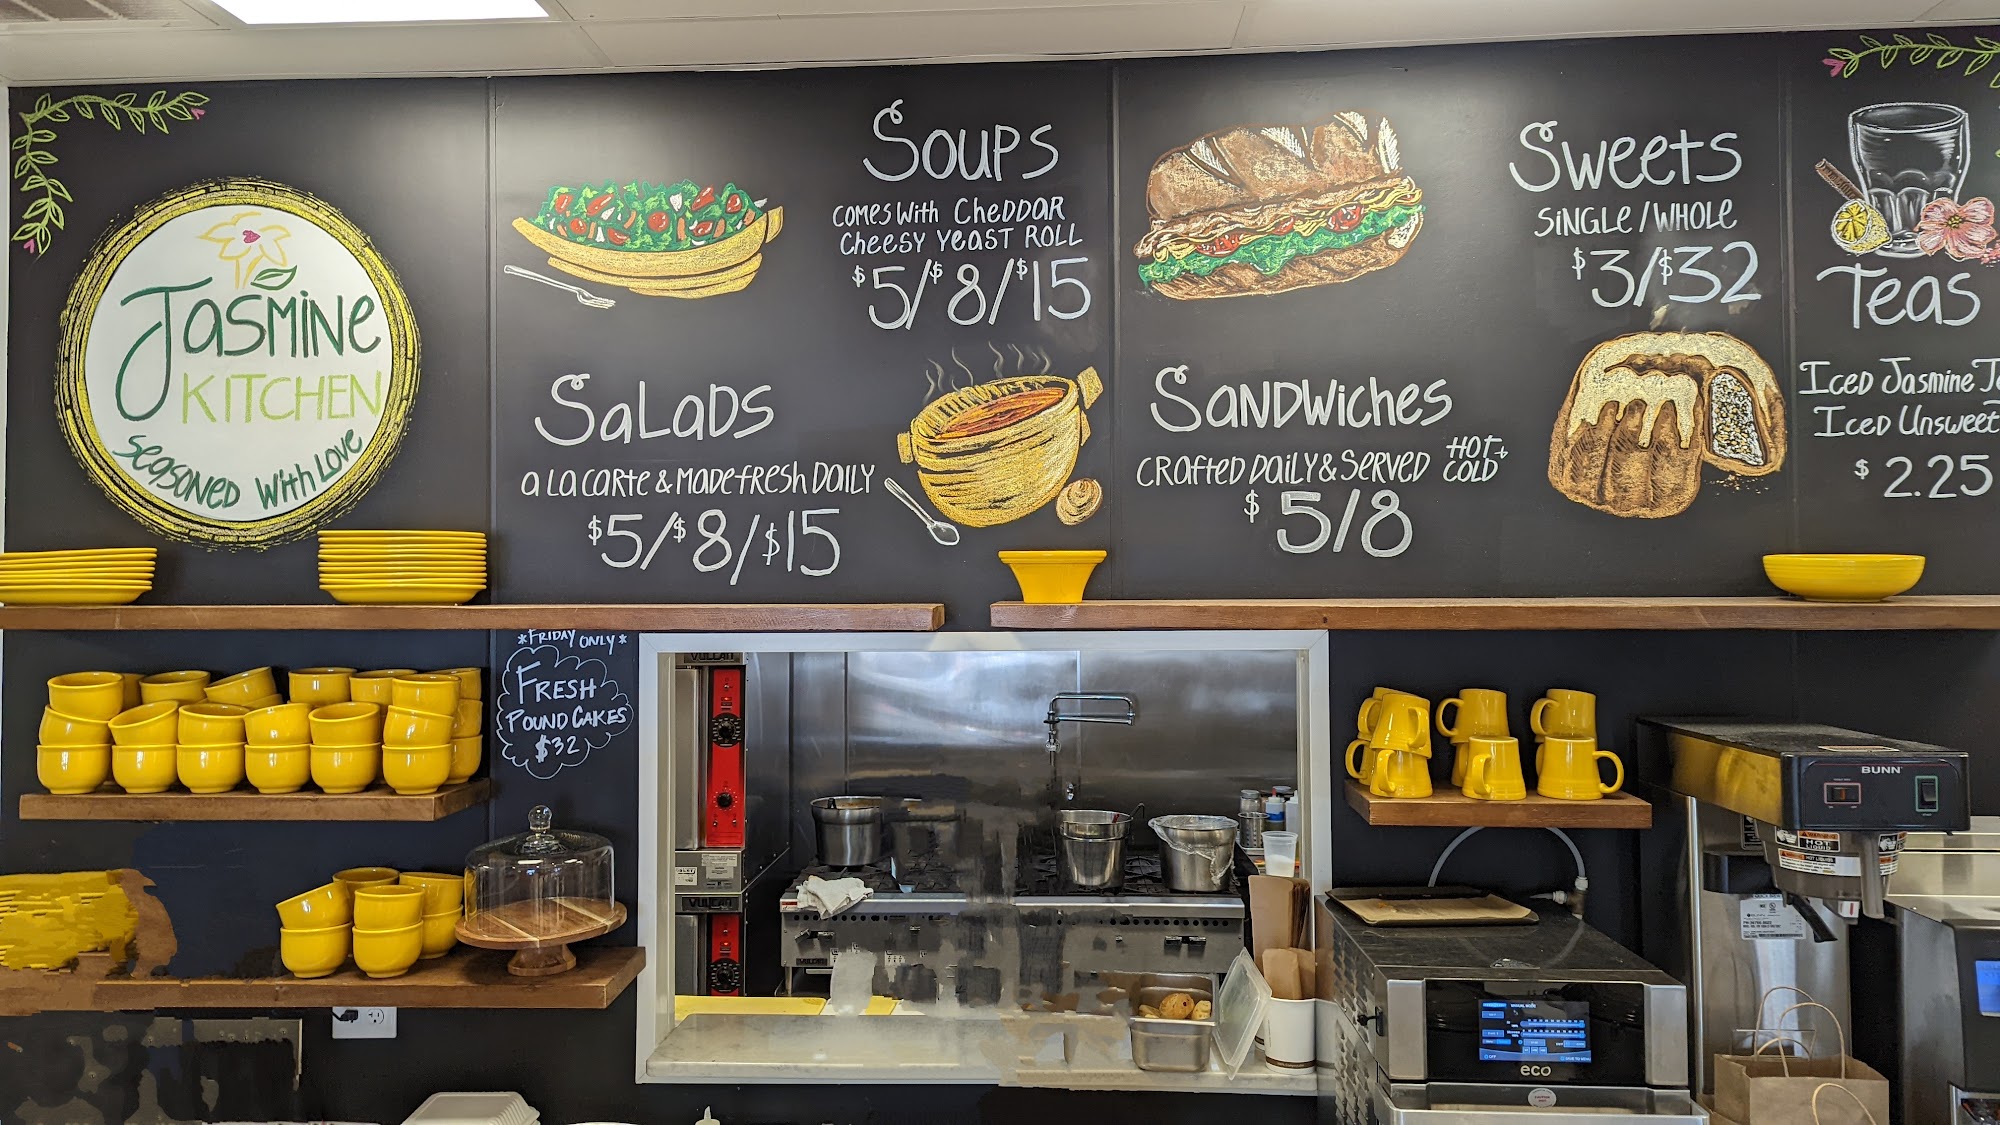 Jasmine
KITCHEN
Seasoned with Love
Soups
comes with Cheddar
Cheesy Yeast Roll
$5/$8/$15
Salads
a la carte & made fresh daily
$5/$8/$15
Sandwiches
Crafted Daily & Served HOT + COLD
$5/8
Sweets
Single/Whole
$3/$32
Teas
Iced Jasmine
Iced Unsweet
$2.25
*Friday only*
Fresh
Pound Cakes
$32
VULCAN
VULCAN
BUNN
HOT
eco